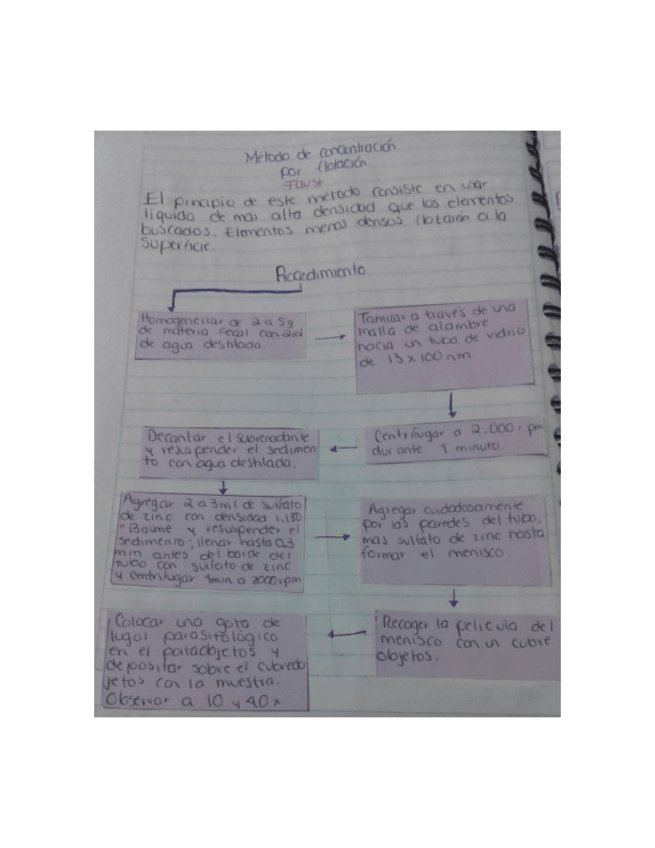 Método de concentración
por flotación
Faust
El principio de este método consiste en usar
líquido de más alta densidad que los elementos
buscados. Elementos menos densos flotarán a la
superficie.
Procedimiento
Homogeneizar de 2 a 5g
de materia fecal con 2ml
de agua destilada.
Tamizar a través de una
malla de alambre
hacia un tubo de vidrio
de 13 x 100 nm
Centrifugar a 2.000 rpm
durante 1 minuto.
Decantar el sobrenadante
y resuspender el sedimen
to con agua destilada.
Agregar 2 a 3ml de sulfato
de zinc con densidad 1.180
°Baumé y resuspender el
sedimento; llenar hasta 0,3
mm antes del borde del
tubo con sulfato de zinc
y centrifugar 1min a 2000rpm
Agregar cuidadosamente
por las paredes del tubo,
mas sulfato de zinc hasta
formar el menisco.
Recoger la pelicula del
menisco con un cubre
objetos.
Colocar una gota de
lugol parasitológico
en el portaobjetos y
depositar sobre el cubreob
jetos con la muestra.
Observar a 10 y 40x